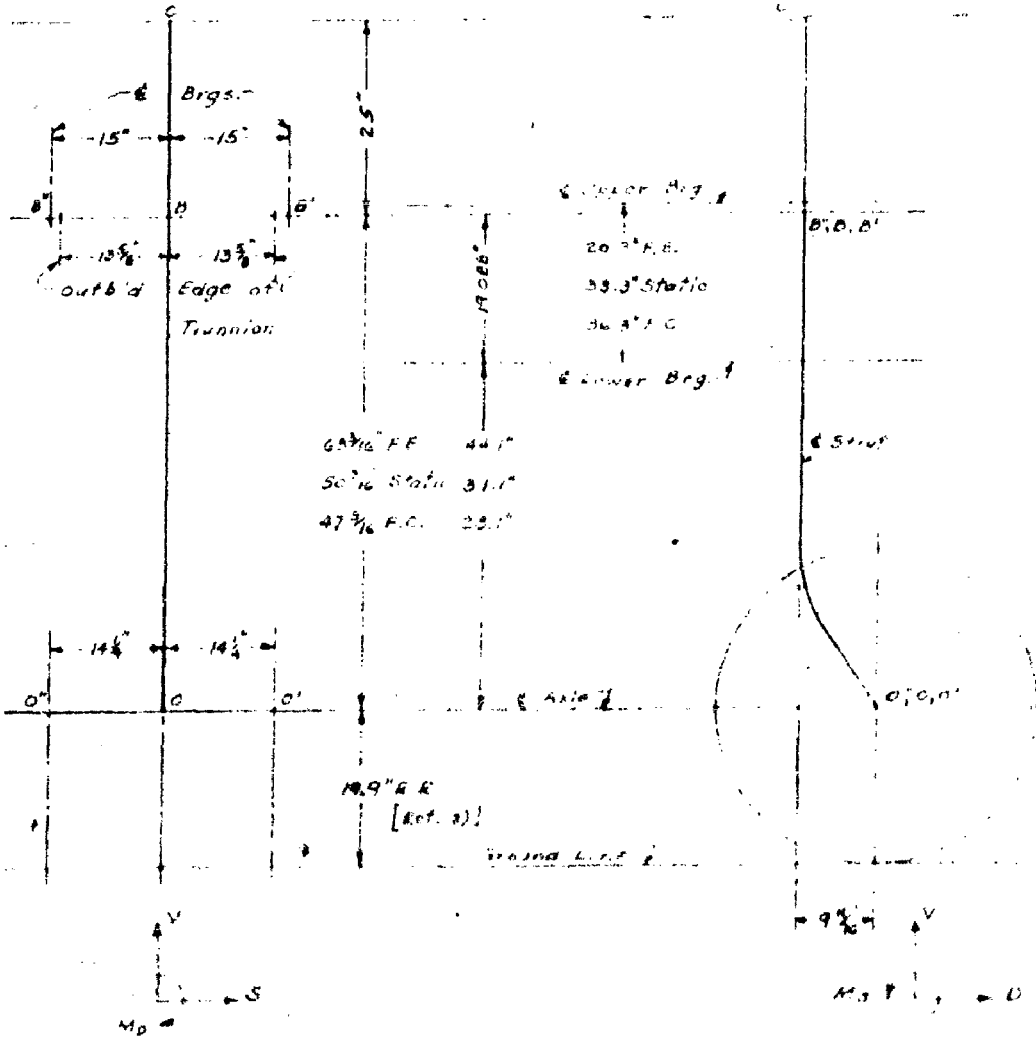 C
℄ Brgs.
15" 15"
25"
B" B B'
13 5/8" 13 5/8"
Outb'd Edge of
Trunnion
19.088"
℄ Upper Brg.
33.3" Static
36.3" F.C.
℄ Lower Brg.
B", B, B'
℄ Strut
63 3/16" F.E. 44.1"
50 3/16 Static 31.1"
47 3/16 F.C. 28.1"
14 1/4" 14 1/4"
O" O O'
℄ Axle
O", O, O'
Ground Line
V
S
V
D